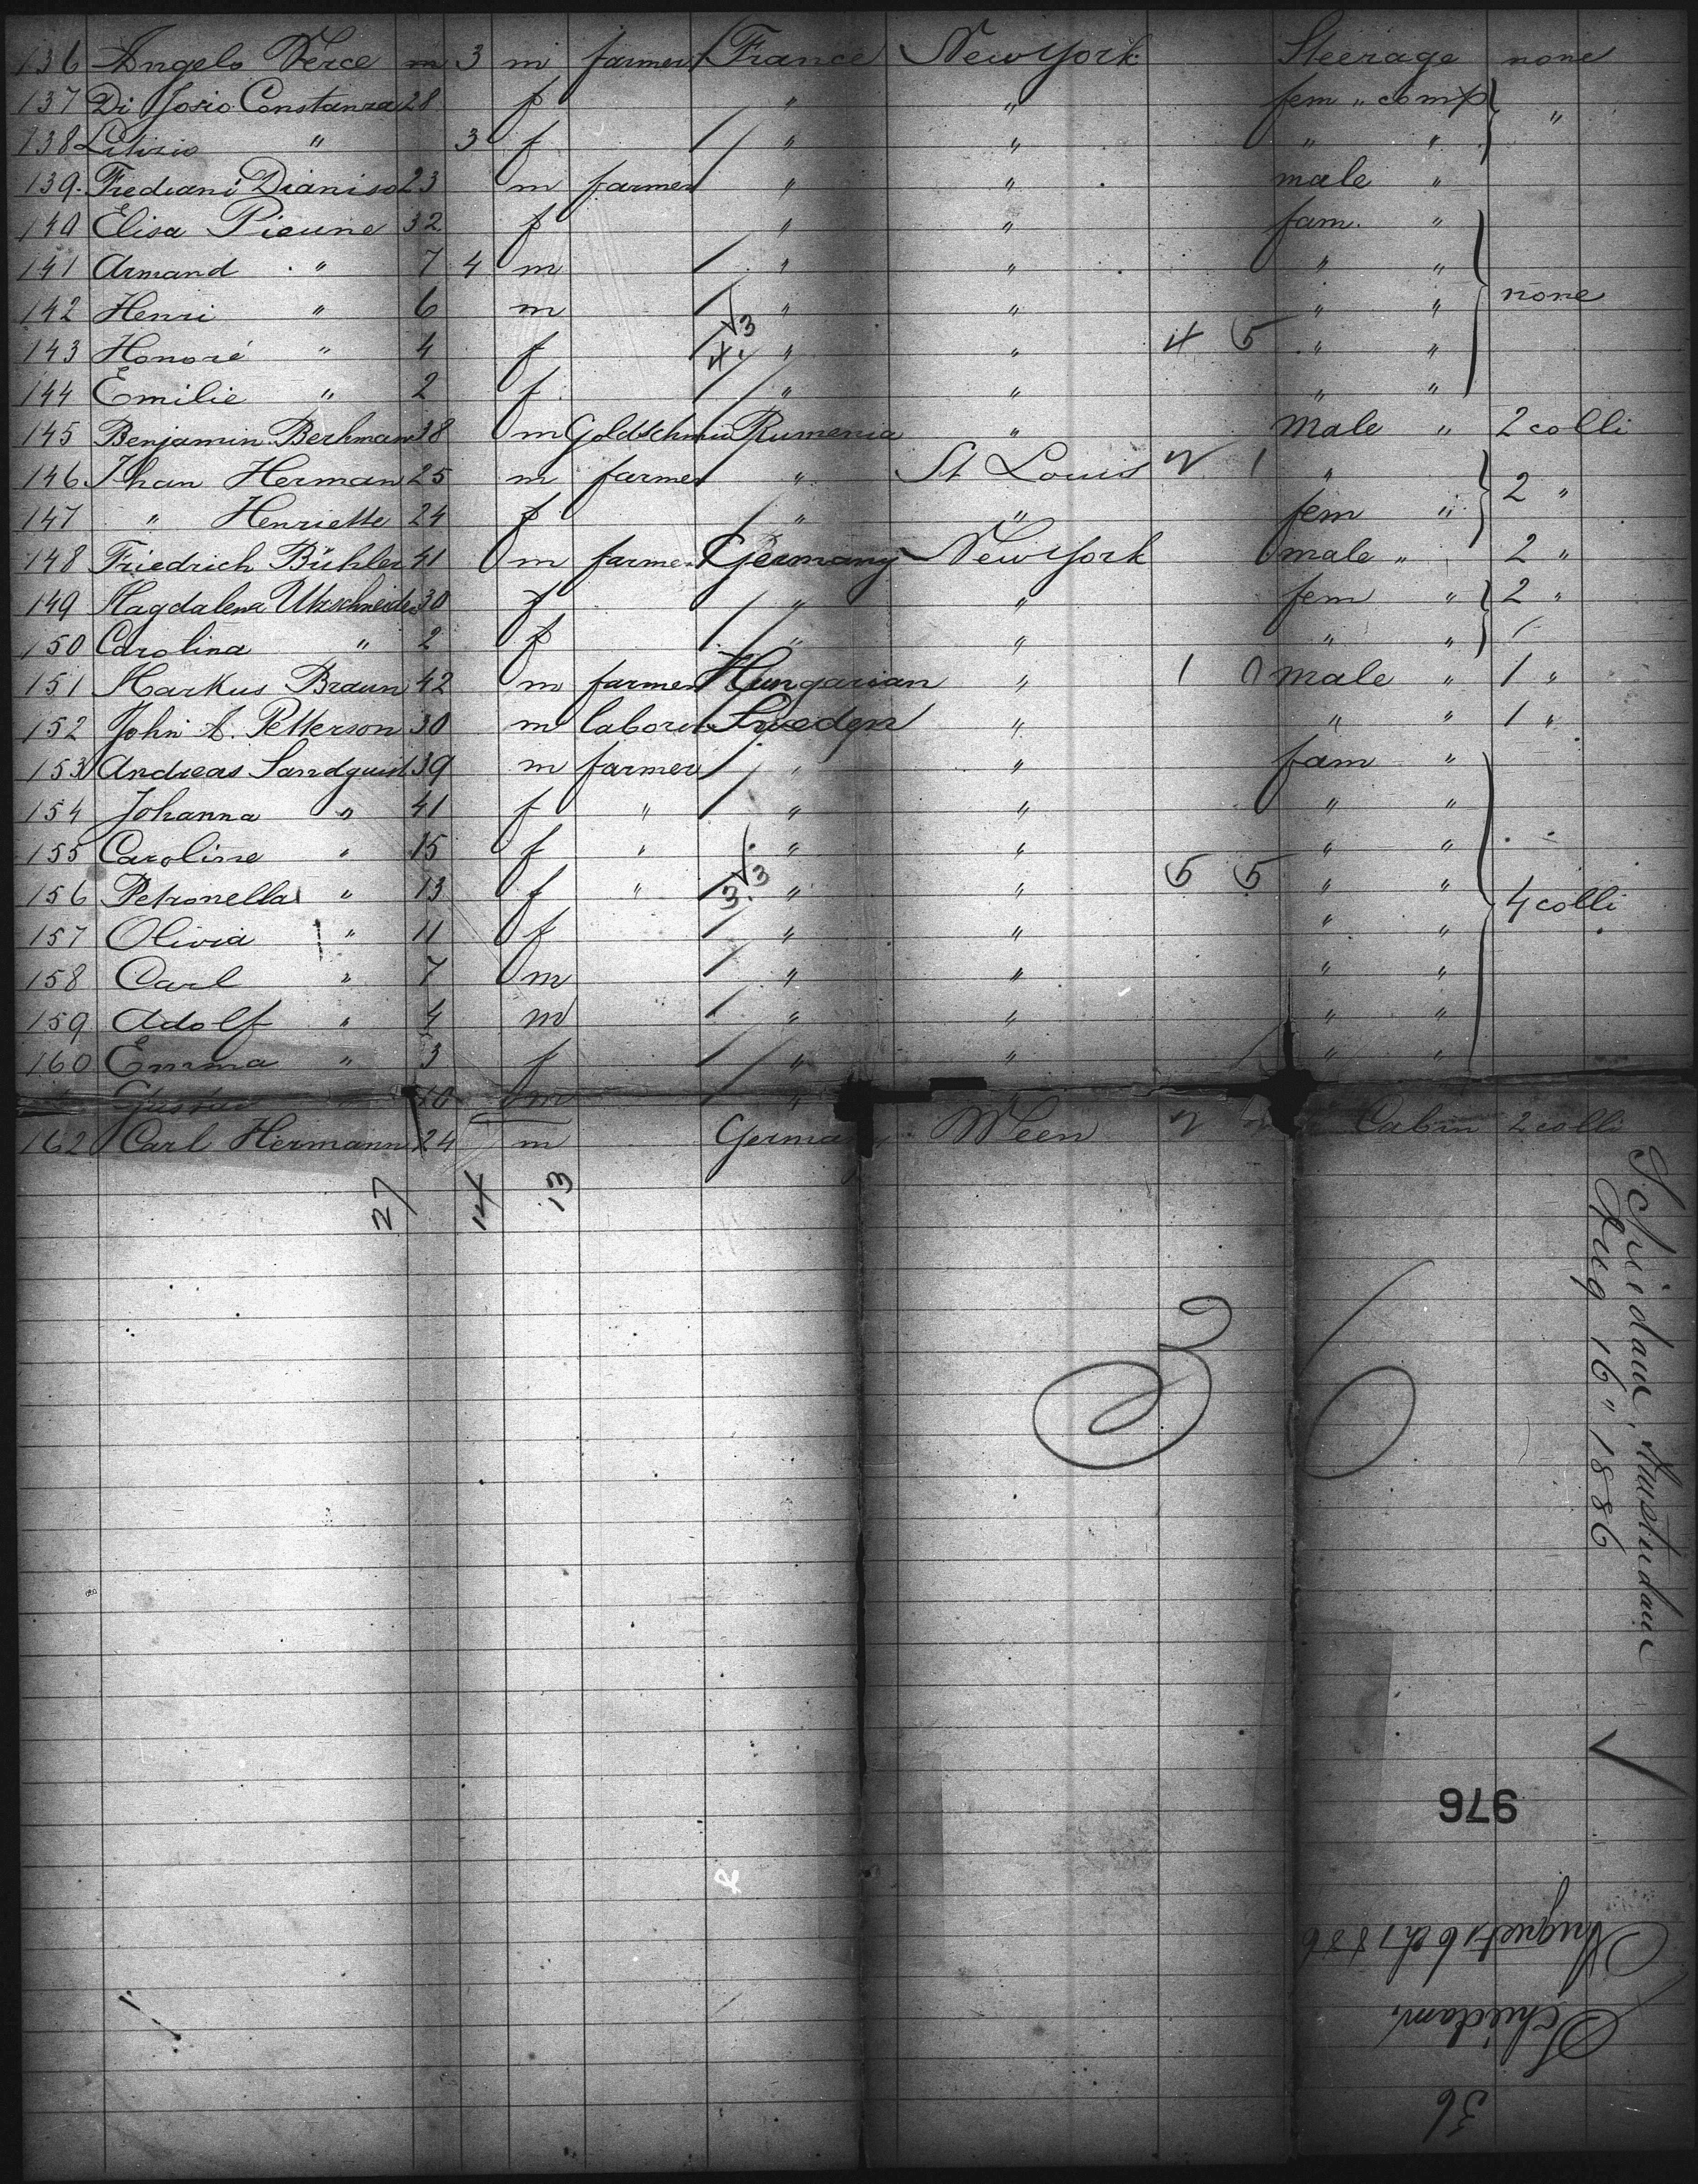 136 Angelo Verce m 3 m farmer France New York Steerage none
137 Di Josio Constanza 28 f " " fem " comp "
138 " 3 f " " " "
139. Frediani Dianiso 23 m farmer " " male "
140 Elisa Pieune 32 f " " fam. "
141 Armand " 7 4 m " " " "
142 Henri " 6 m " " " " none
143 Honoré " 4 f " " 4 5 " "
144 Emilie " 2 f " " " "
145 Benjamin Berhman 38 m Goldschmid Rumenia " Male " 2 colli
146 Herman 25 m farmer " St Louis 2 1 " 2 "
147 " Henriette 24 f " " fem "
148 Friedrich Bühler 41 m farmer Germany New York male " 2 "
149 Magdalena Utzschneider 30 f " " fem " 2 "
150 Carolina " 2 f " " " "
151 Markus Braun 42 m farmer Hungarian " 1 0 male " 1 "
152 John A. Petterson 30 m laborer Sweden " " " 1 "
153 Andreas Sandquist 39 m farmer " " fam "
154 Johanna " 41 f " " " " "
155 Caroline " 15 f " " " " "
156 Petronella " 13 f " " " 5 5 " " 4 colli
157 Olivia " 11 f " " " "
158 Carl " 7 m " " " "
159 Adolf " 4 m " " " "
160 Emma " 3 f " " " "
Gustav " 10 m " "
162 Carl Hermann 24 m Germany Ween 2 Cabin 2 colli
27 14 13
Schiedam, Amsterdam
Aug 16" 1886
976
August 16th 1886
Schiedam,
36